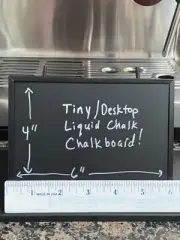 Tiny/Desktop
Liquid Chalk
Chalkboard!
4"
6"
1 2 3 4 5 6